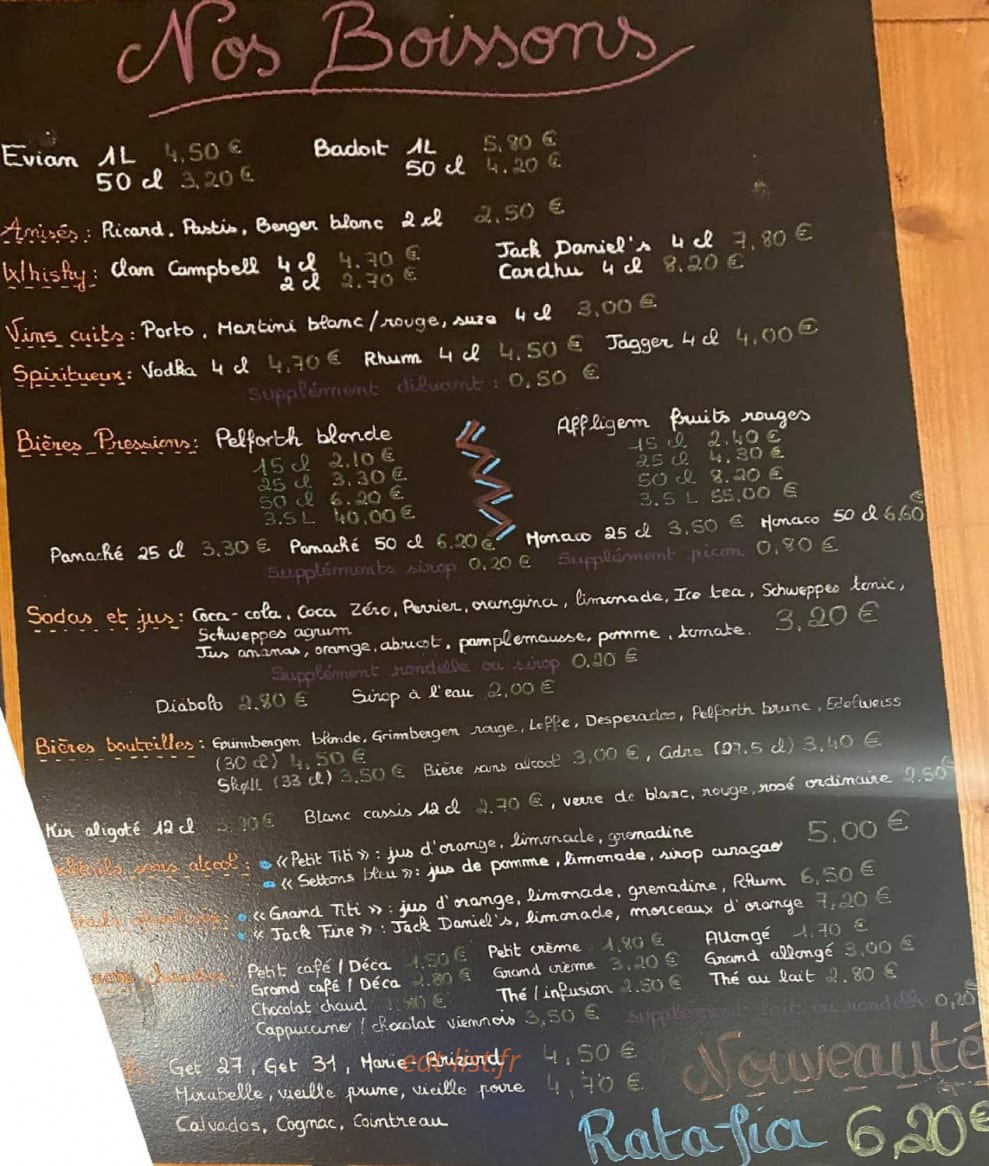 Nos Boissons
Evian 1L 4,50 € Badoit 1L 5,80 €
50 cl 3,20 € 50 cl 4,20 €
Anisés : Ricard, Pastis, Berger blanc 2 cl 2,50 €
Whisky : Clam Campbell 4 cl 4,70 € Jack Daniel's 4 cl 7,80 €
2 cl 2,70 € Cardhu 4 cl 8,20 €
Vins cuits : Porto, Martini blanc/rouge, suze 4 cl 3,00 €
Spiritueux : Vodka 4 cl 4,70 € Rhum 4 cl 4,50 € Jagger 4 cl 4,00 €
Supplément diluant : 0,50 €
Bières Pressions : Pelforth blonde Affligem fruits rouges
15 cl 2.10 € 15 cl 2.40 €
25 cl 3.30 € 25 cl 4.30 €
50 cl 6.20 € 50 cl 8.20 €
3.5 L 40,00 € 3.5 L 55,00 €
Panaché 25 cl 3,30 € Panaché 50 cl 6,20 € Monaco 25 cl 3,50 € Monaco 50 cl 6,60 €
Suppléments sirop 0,20 € Supplément picon 0,80 €
Sodas et jus : Coca-cola, Coca Zéro, Perrier, orangina, limonade, Ice tea, Schweppes tonic,
Schweppes agrum
Jus ananas, orange, abricot, pamplemousse, pomme, tomate. 3,20 €
Supplément rondelle ou sirop 0,20 €
Diabolo 2,80 € Sirop à l'eau 2,00 €
Bières bouteilles : Grimbergen blonde, Grimbergen rouge, Leffe, Desperados, Pelforth brune, Edelweiss
(30 cl) 4,50 €
Skøll (33 cl) 3,50 € Bière sans alcool 3,00 €, Cidre (27.5 cl) 3,40 €
Kir aligoté 12 cl €  Blanc cassis 12 cl 2,70 €, verre de blanc, rouge, rosé ordinaire 2,50 €
sans alcool : « Petit Titi » : jus d'orange, limonade, grenadine 5,00 €
« Settons bleu » : jus de pomme, limonade, sirop curaçao
« Grand Titi » : jus d'orange, limonade, grenadine, Rhum 6,50 €
« Jack Fine » : Jack Daniel's, limonade, morceaux d'orange 7,20 €
Petit café / Déca 1,50 € Petit crème 1,80 € Allongé 1,70 €
Grand café / Déca 2,80 € Grand crème 3,20 € Grand allongé 3,00 €
Chocolat chaud € Thé / infusion 2.50 € Thé au lait 2.80 €
Cappuccino / chocolat viennois 3,50 € supplément lait ou rondelle 0,20 €
Get 27, Get 31, Marie Brizard 4,50 €
eat-list.fr
Mirabelle, vieille prune, vieille poire 4,70 €
Calvados, Cognac, Cointreau
Nouveauté
Ratafia 6,20 €